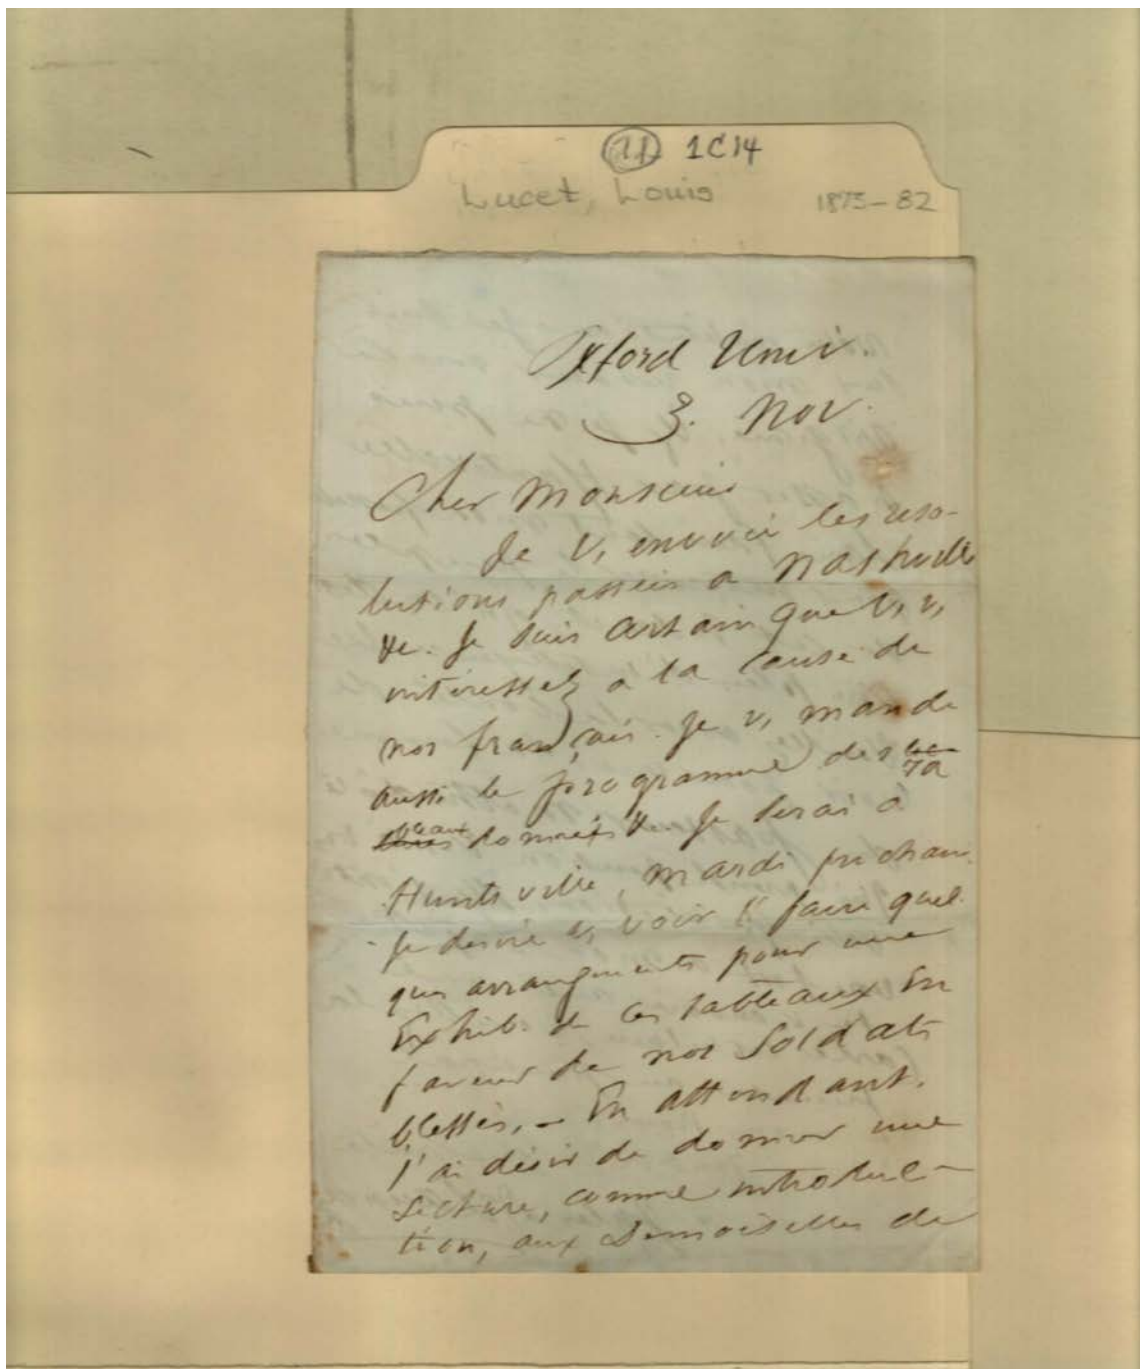 11 1C14
Lucet, Louis 1875-82
Oxford Univ.
3. Nov.
Cher Monsieur
Je v, envoie les reso-
lutions passées a Nashville
&c. Je suis certain que v, v,
interessez a la cause de
nos français. Je v, mande
aussi le programme des ta
bleaux donnés &c. Je serai à
Huntsville, mardi prochain
Je desire v, voir & faire quel
ques arrangements pour une
Exhib. de ces tableaux En
faveur de nos Soldats
blessés, - En attendant.
j'ai désir de donner une
Lecture, comme introduc-
tion, aux Demoiselles de